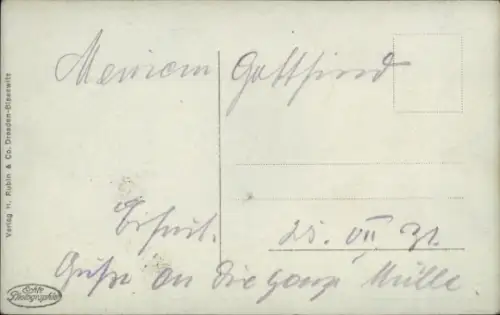 Meinem Gottfried
Erfurt. 25. VII. 31.
Grüße an die ganze Mülle.
Verlag H. Rubin & Co. Dresden-Blasewitz
Echte
Photographie